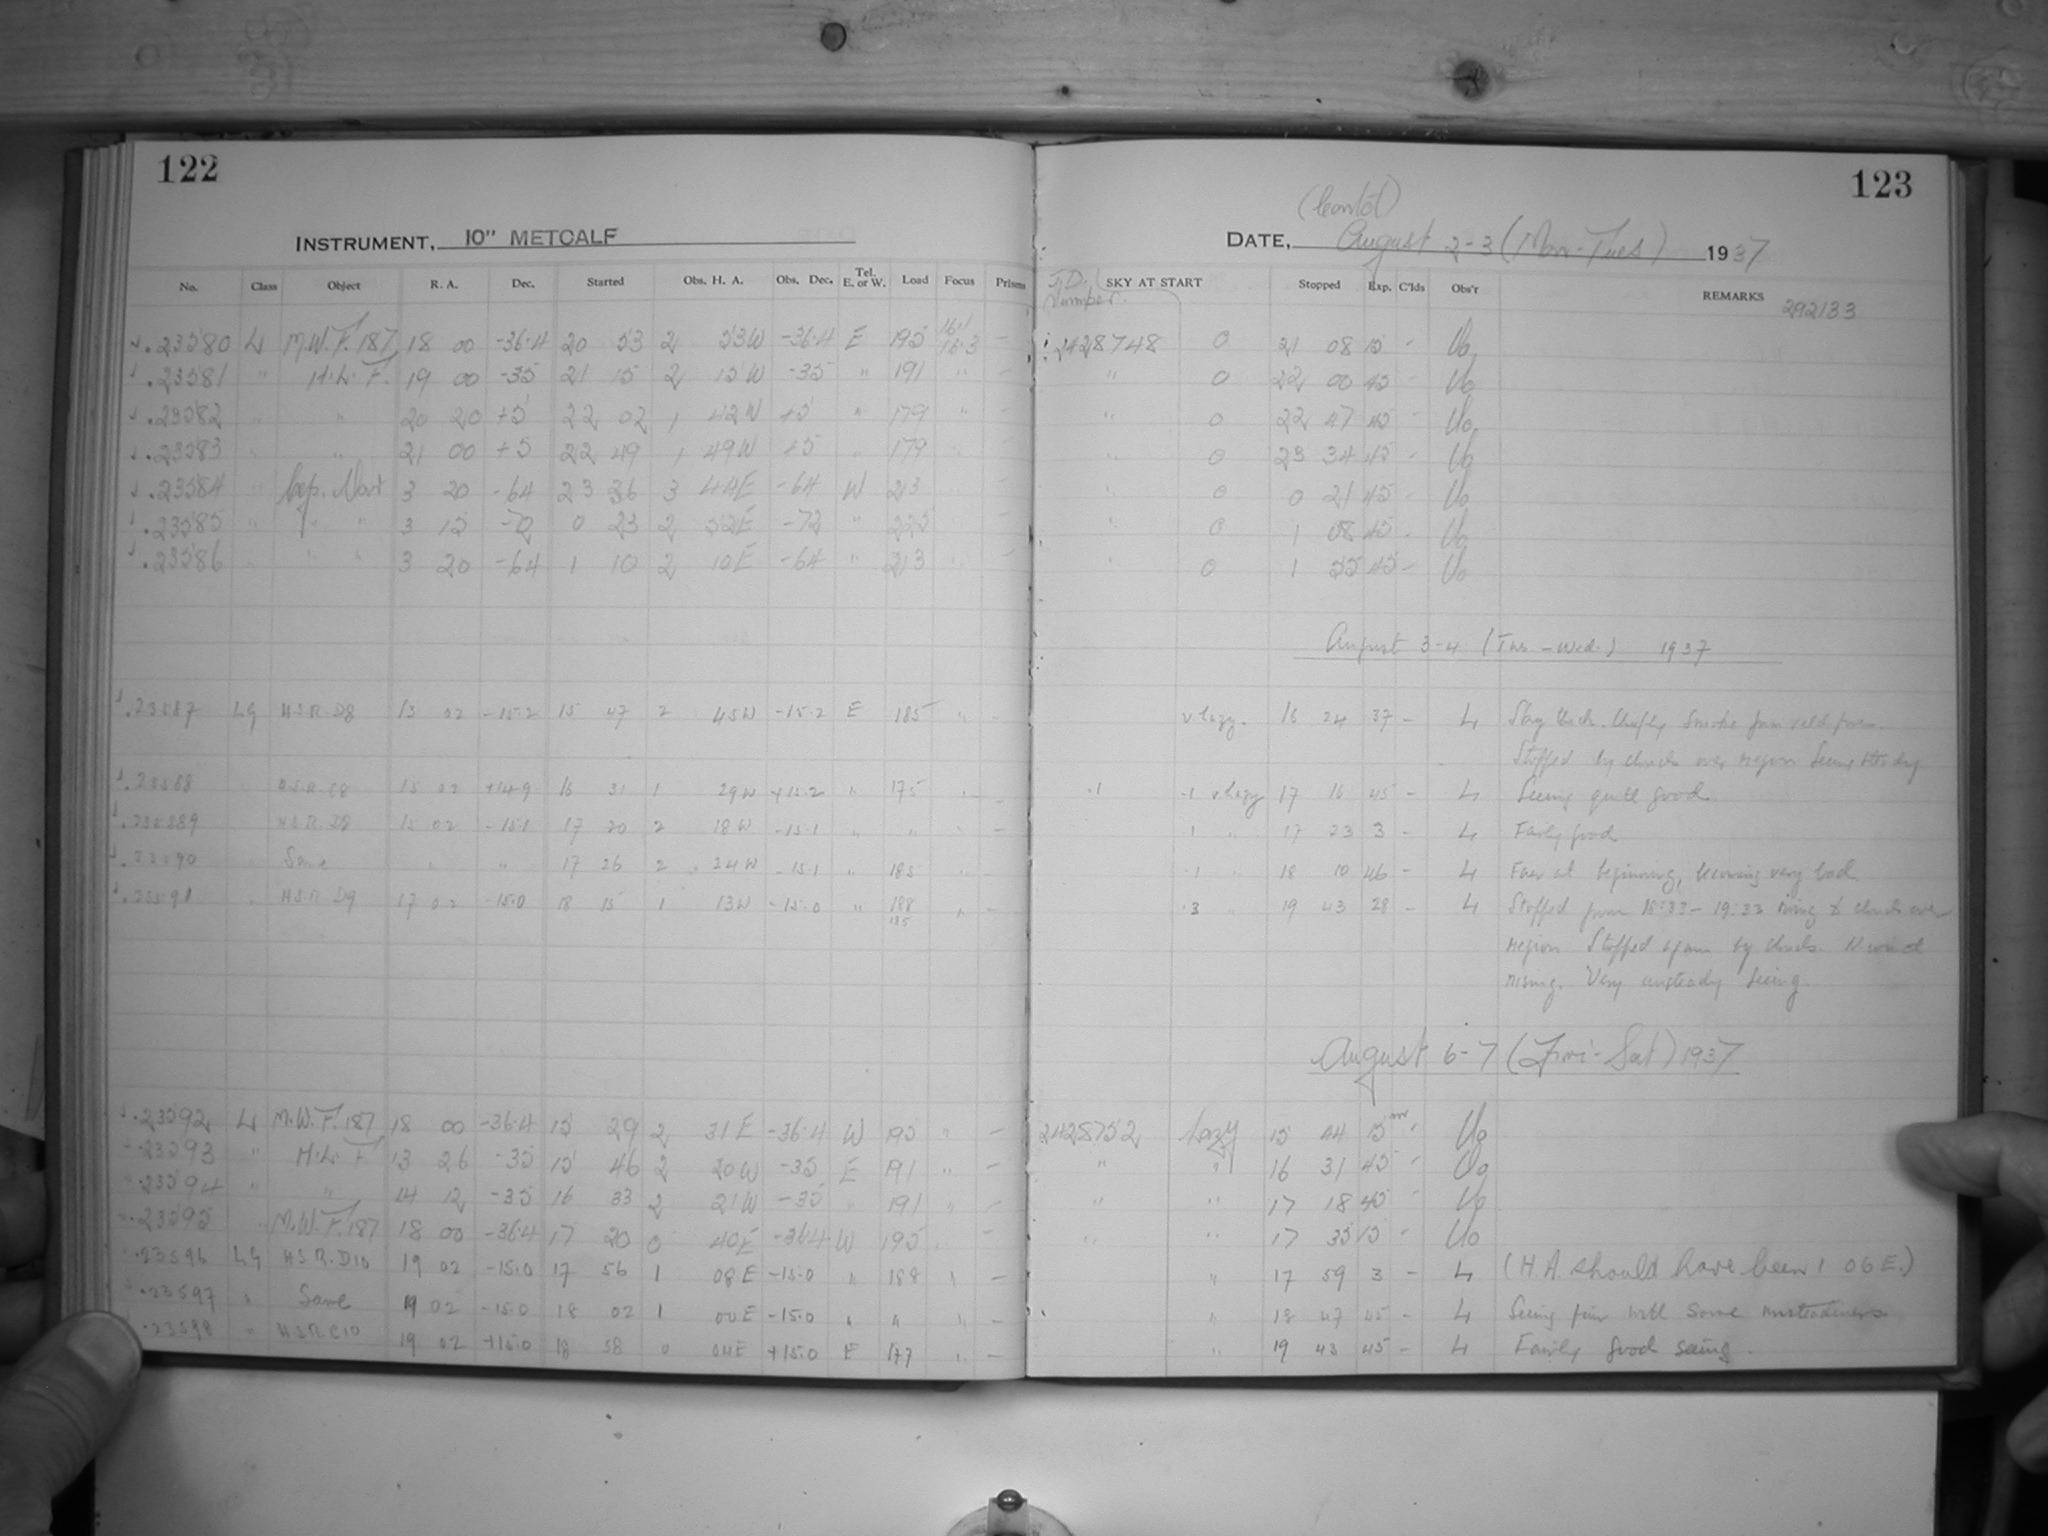 122
123
INSTRUMENT, 10" METCALF
(Contd)
DATE, August 2-3 (Mon-Tues) 1937
No. Class Object R. A. Dec. Started Obs. H. A. Obs. Dec. Tel. E. or W. Load Focus Prisms J.D. Number. SKY AT START Stopped Exp. C'lds Obs'r REMARKS 292133
.23580 L M.W.F. 187 18 00 -36.4 20 53 2 53W -36.4 E 195 16.1 16.3 - 2428748 0 21 08 15 - Uo
.23581 " H.L.F. 19 00 -35 21 15 2 15W -35 " 191 " - " 0 22 00 45 - Uo
.23582 " " 20 20 +5 22 02 1 42W +5 " 179 " - " 0 22 47 45 - Uo
.23583 " " 21 00 +5 22 49 1 49W +5 " 179 " - " 0 23 34 45 - Uo
.23584 " Cep. Var 3 20 -64 23 36 3 44E -64 W 213 - " 0 0 21 45 - Uo
.23585 " " " 3 15 -72 0 23 2 52E -72 " 225 - " 0 1 08 45 - Uo
.23586 " " " 3 20 -64 1 10 2 10E -64 " 213 - " 0 1 55 45 - Uo
August 3-4 (Tues - Wed.) 1937
.23587 LG HSR. D8 15 02 -15.2 15 47 2 45W -15.2 E 185 " - v hazy. 16 24 37 - L Sky thick. Chiefly smoke from veld fires.
Stopped by clouds over region Seeing steady
.23588 HSR. C8 15 02 +14.9 16 31 1 29W +15.2 " 175 " - .1 .1 v hazy 17 16 45 - L Seeing quite good
.23589 HSR. D8 15 02 -15.1 17 20 2 18W -15.1 " " " - .1 " 17 23 3 - L Fairly good
.23590 " Same " " 17 26 2 24W -15.1 " 185 " - .1 " 18 10 46 - L Fair at beginning, becoming very bad.
.23591 " HSR. D9 17 02 -15.0 18 15 1 13W -15.0 " 188 185 " - .3 " 19 43 28 - L Stopped from 18:33 - 19:33 & clouds over
region Stopped again by clouds. N wind
rising. Very unsteady seeing.
August 6-7 (Fri-Sat) 1937
.23592 L M.W.F. 187 18 00 -36.4 15 29 2 31E -36.4 W 195 " - 2428752 hazy 15 44 15 - Uo
.23593 " H.L.F. 13 26 -35 15 46 2 20W -35 E 191 " - " " 16 31 45 - Uo
.23594 " " 14 12 -35 16 33 2 21W -35 " 191 " - " " 17 18 45 - Uo
.23595 " M.W.F. 187 18 00 -36.4 17 20 0 40E -36.4 W 195 - " " 17 35 15 - Uo
.23596 LG HSR. D10 19 02 -15.0 17 56 1 08E -15.0 " 188 " - " 17 59 3 - L (H A should have been 1 06 E.)
.23597 " Same 19 02 -15.0 18 02 1 00E -15.0 " " " - " 18 47 45 - L Seeing fair with some unsteadiness
.23598 " HSR. C10 19 02 +15.0 18 58 0 04E +15.0 E 177 " - " 19 43 45 - L Fairly good seeing.